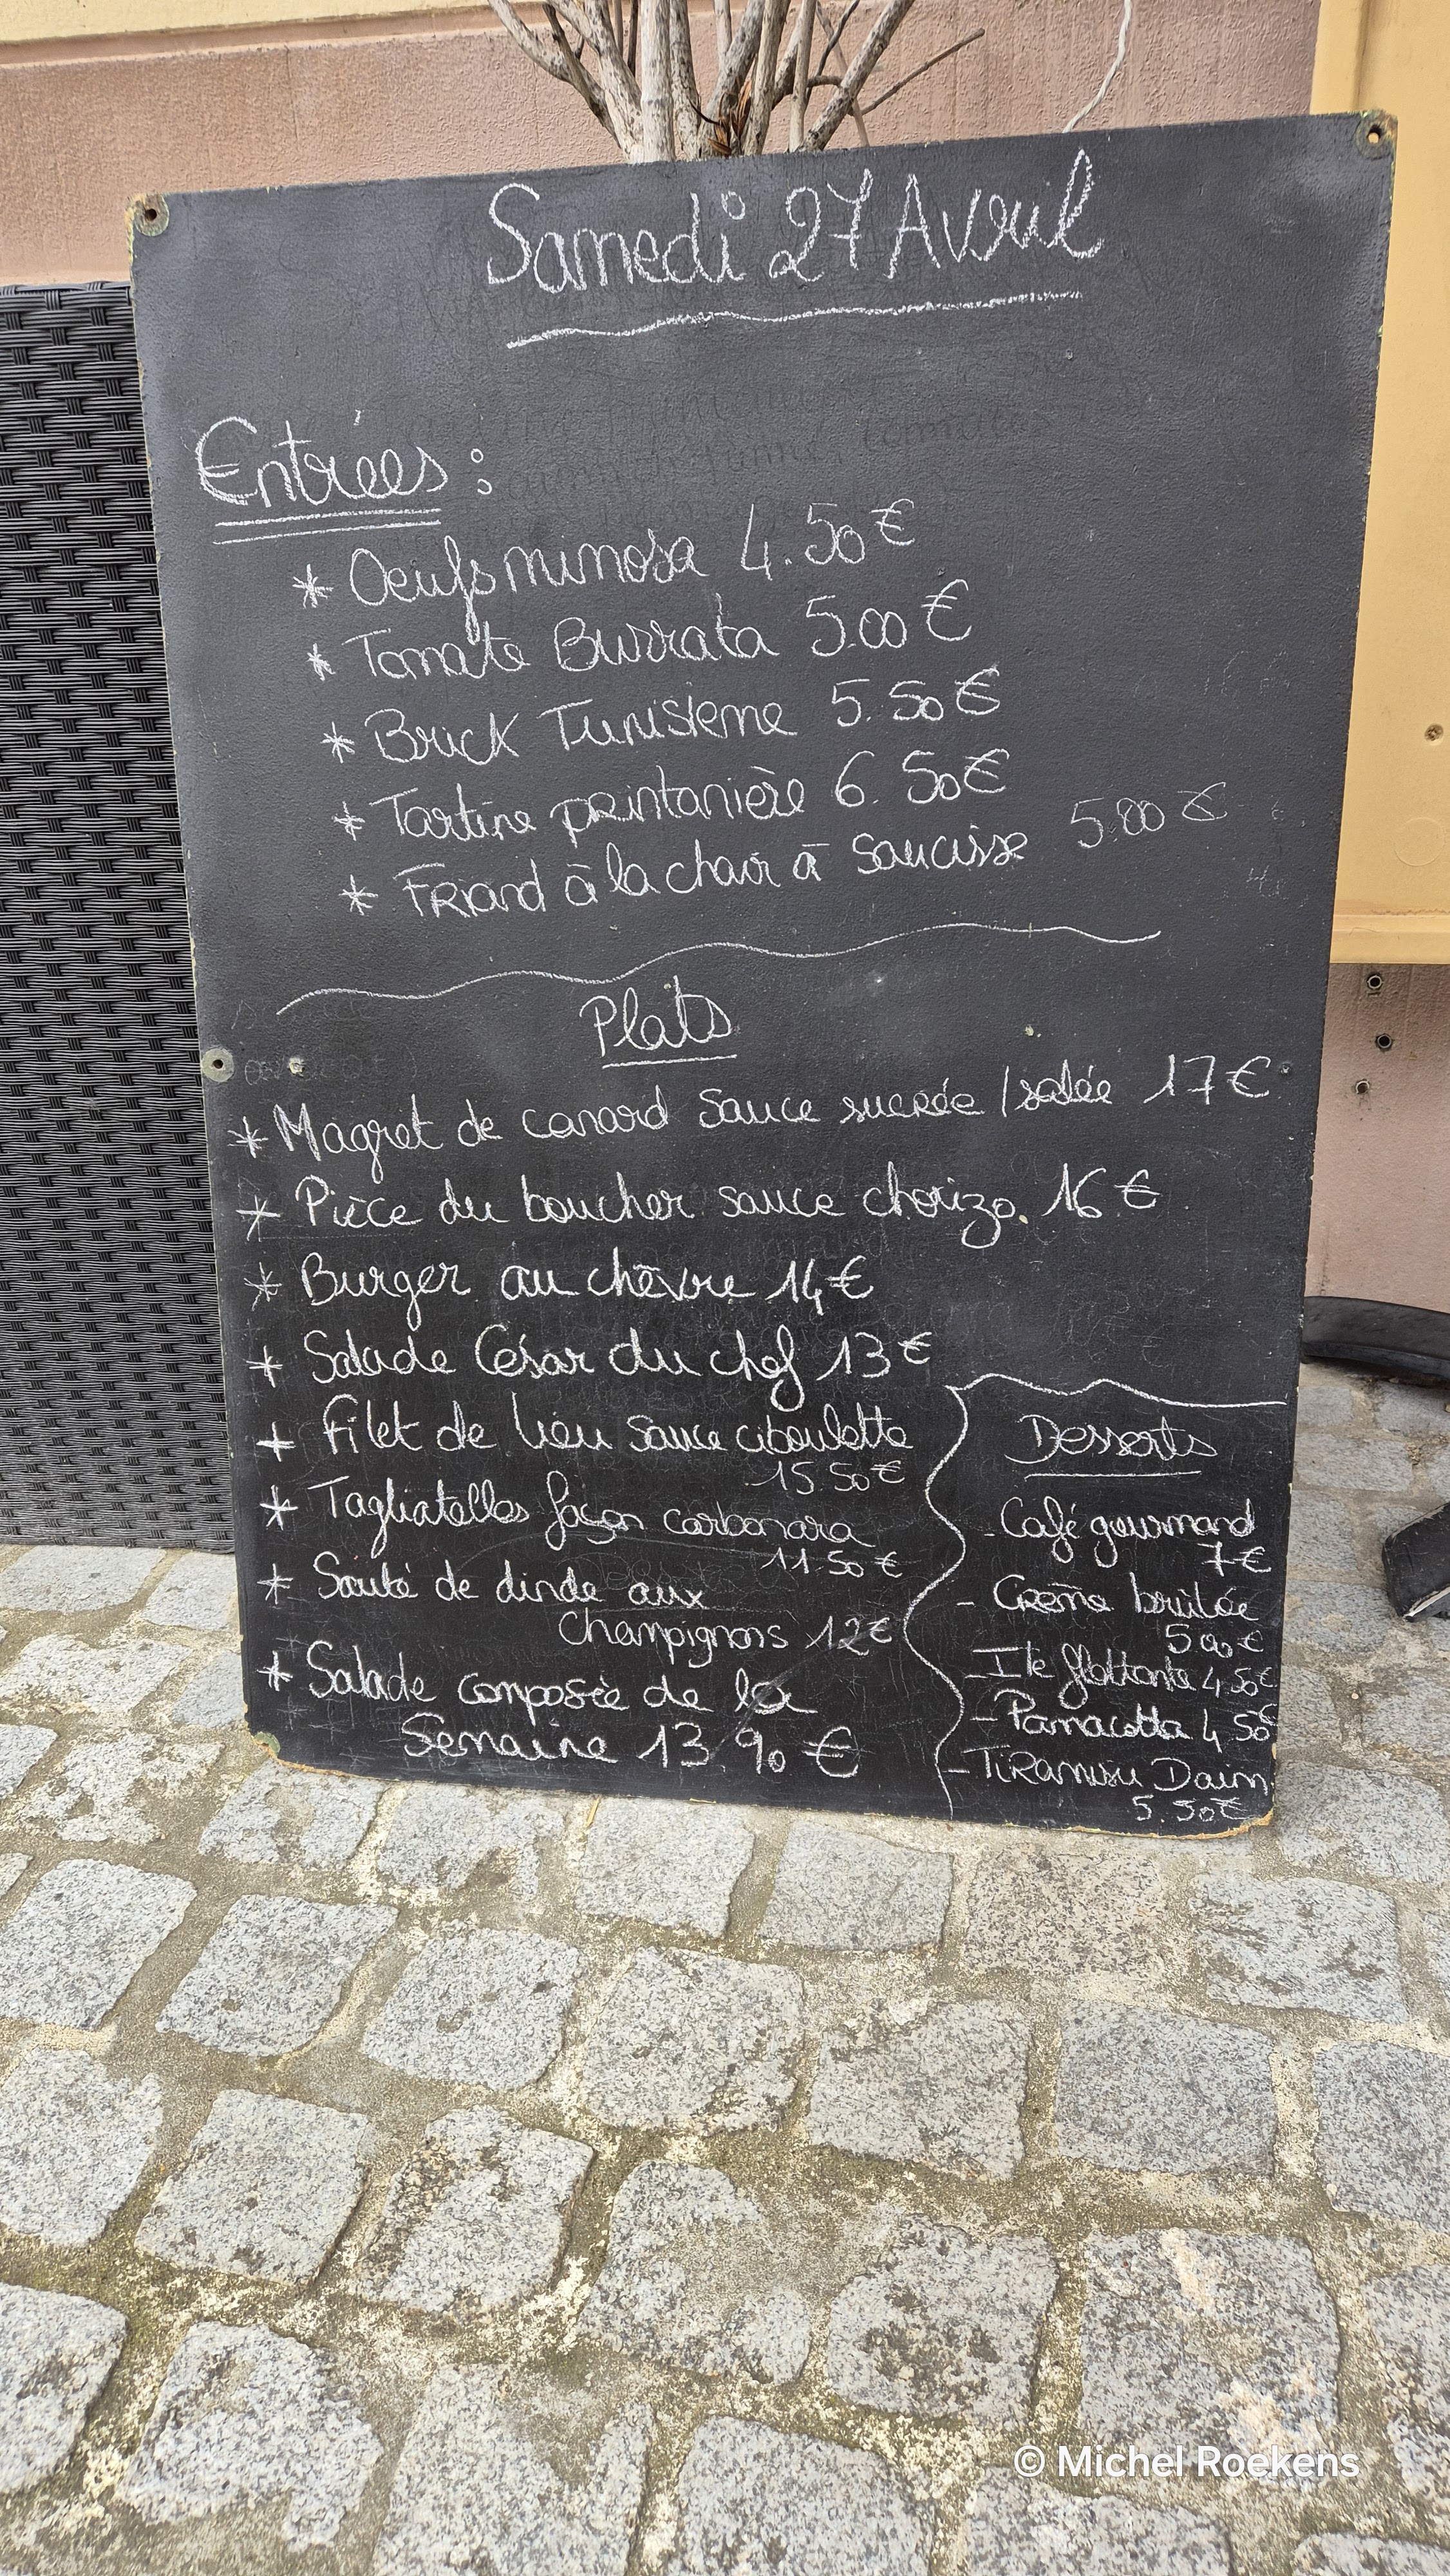 Samedi 27 Avril
Entrées :
* Oeufs mimosa 4.50€
* Tomate Burrata 5.00€
* Brick Tunisienne 5.50€
* Tartine printanière 6.50€
* Friand à la chair à saucisse 5.00€
Plats
* Magret de canard sauce sucrée/salée 17€
* Pièce du boucher sauce chorizo. 16€
* Burger au chèvre 14€
* Salade César du chef 13€
* Filet de lieu sauce ciboulette
15.50€
* Tagliatelles façon carbonara
11.50€
* Sauté de dinde aux
Champignons 12€
* Salade composée de la
Semaine 13.90€
Desserts
- Café gourmand
7€
- Crème brûlée
5.00€
- Ile flottante 4,50€
- Panacotta 4.50€
- Tiramisu Daim
5.50€
© Michel Roekens